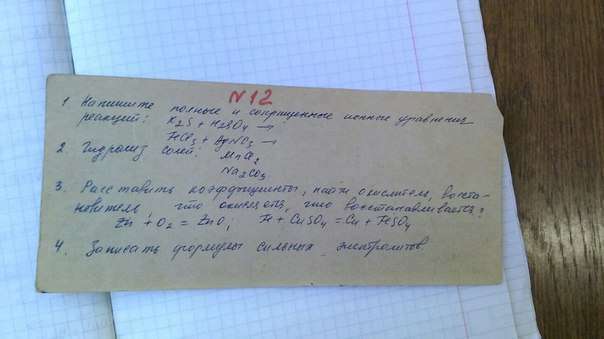 №12
1. Напишите полные и сокращенные ионные уравнения
реакций: K2S + H2SO4 →
FeCl3 + AgNO3 →
2. Гидролиз солей: MnCl2
Na2CO3
3. Расставить коэффициенты, найти окислитель, восста-
новитель, что окисляется, что восстанавливается?
Zn + O2 = ZnO; Fe + CuSO4 = Cu + FeSO4
4. Записать формулы сильных электролитов.